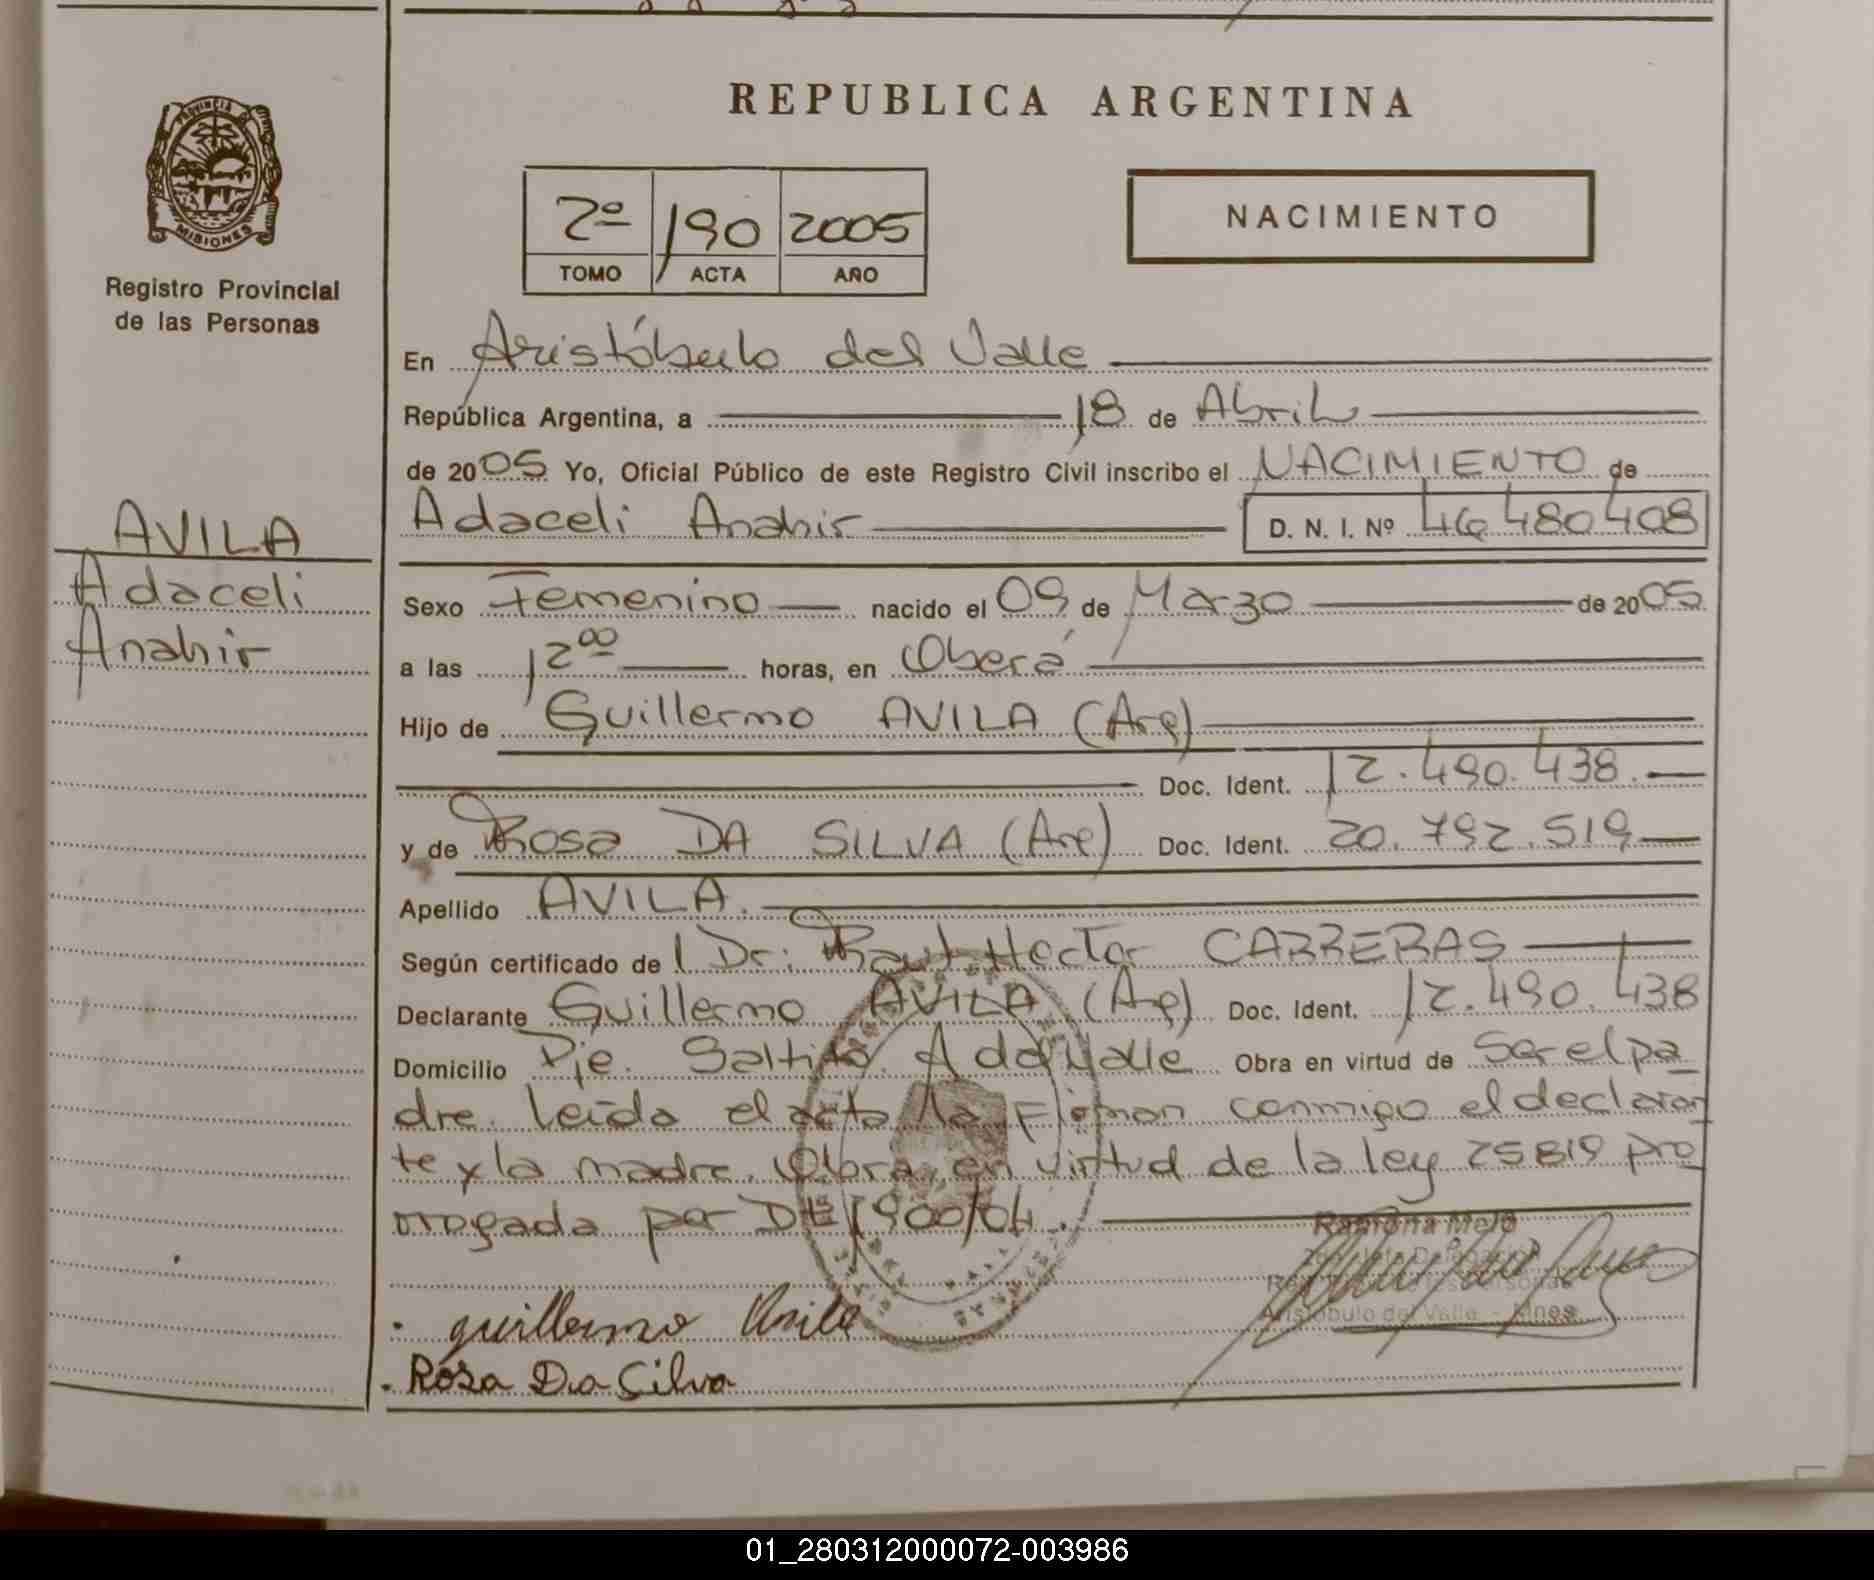 REPUBLICA ARGENTINA
PROVINCIA DE
MISIONES
Registro Provincial
de las Personas
2º 190 2005
TOMO ACTA AÑO
NACIMIENTO
En Aristóbulo del Valle
República Argentina, a 18 de Abril
de 2005 Yo, Oficial Público de este Registro Civil inscribo el NACIMIENTO de
Adaceli Anahir D. N. I. Nº 46480408
AVILA
Adaceli
Anahir
Sexo Femenino nacido el 09 de Marzo de 2005
a las 12 00 horas, en Oberá
Hijo de Guillermo AVILA (Arg)
Doc. Ident. 12.490.438.
y de Rosa DA SILVA (Arg) Doc. Ident. 20.792.519
Apellido AVILA.
Según certificado de l Dr: Raul Hector CARRERAS
Declarante Guillermo AVILA (Arg) Doc. Ident. 12.490.438
Domicilio Pje. Saltito A del Valle Obra en virtud de Ser el pa
dre. Leída el acta la Firman conmigo el declaran
te y la madre. Obra en virtud de la ley 25819 pro
rrogada por Dto 1900/04.
Ramona Melo
Aristóbulo del Valle - Mnes.
guillermo Avila
Rosa Da Silva
01_280312000072-003986